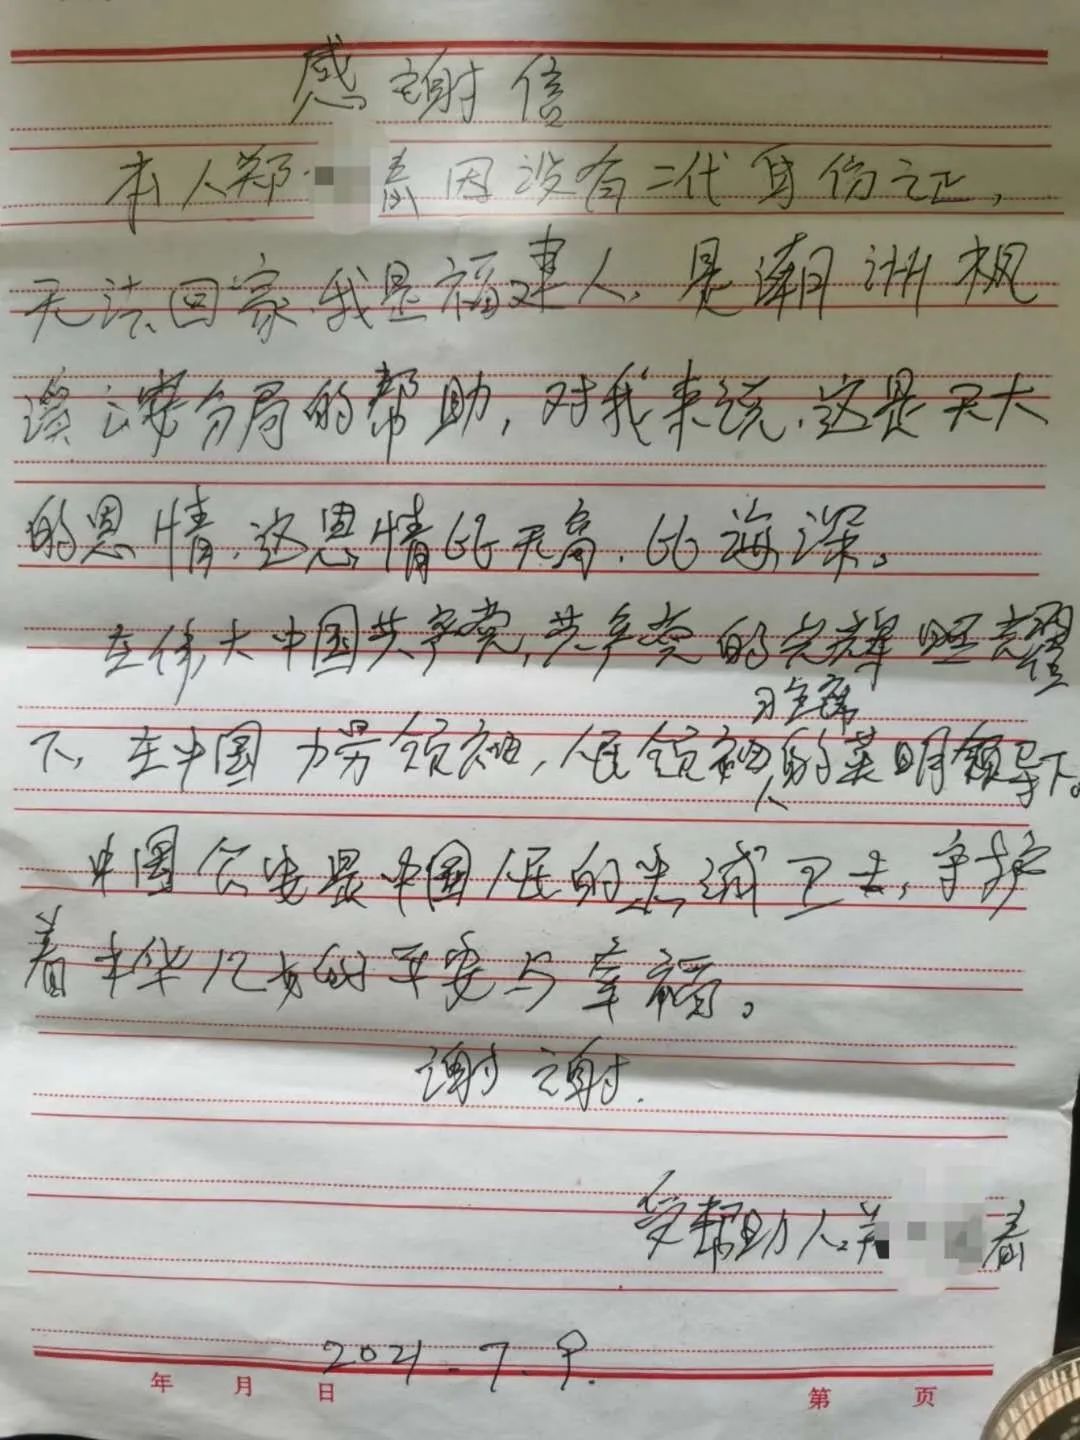 感谢信
本人郑春因没有二代身份证,
无法回家.我是福建人.是潮洲枫
溪分局的帮助,对我来说.这是天大
的恩情.这恩情比天高.比海深。
在伟大中国共产党,共产党的光辉照耀
习主席
下,在中国领袖,人民领袖的英明领导下。
中国公安是中国人民的忠诚卫士,守护
着中华儿女的平安与幸福。
谢谢.
受帮助人:郑春
2021.7.9.
年 月 日 第 页